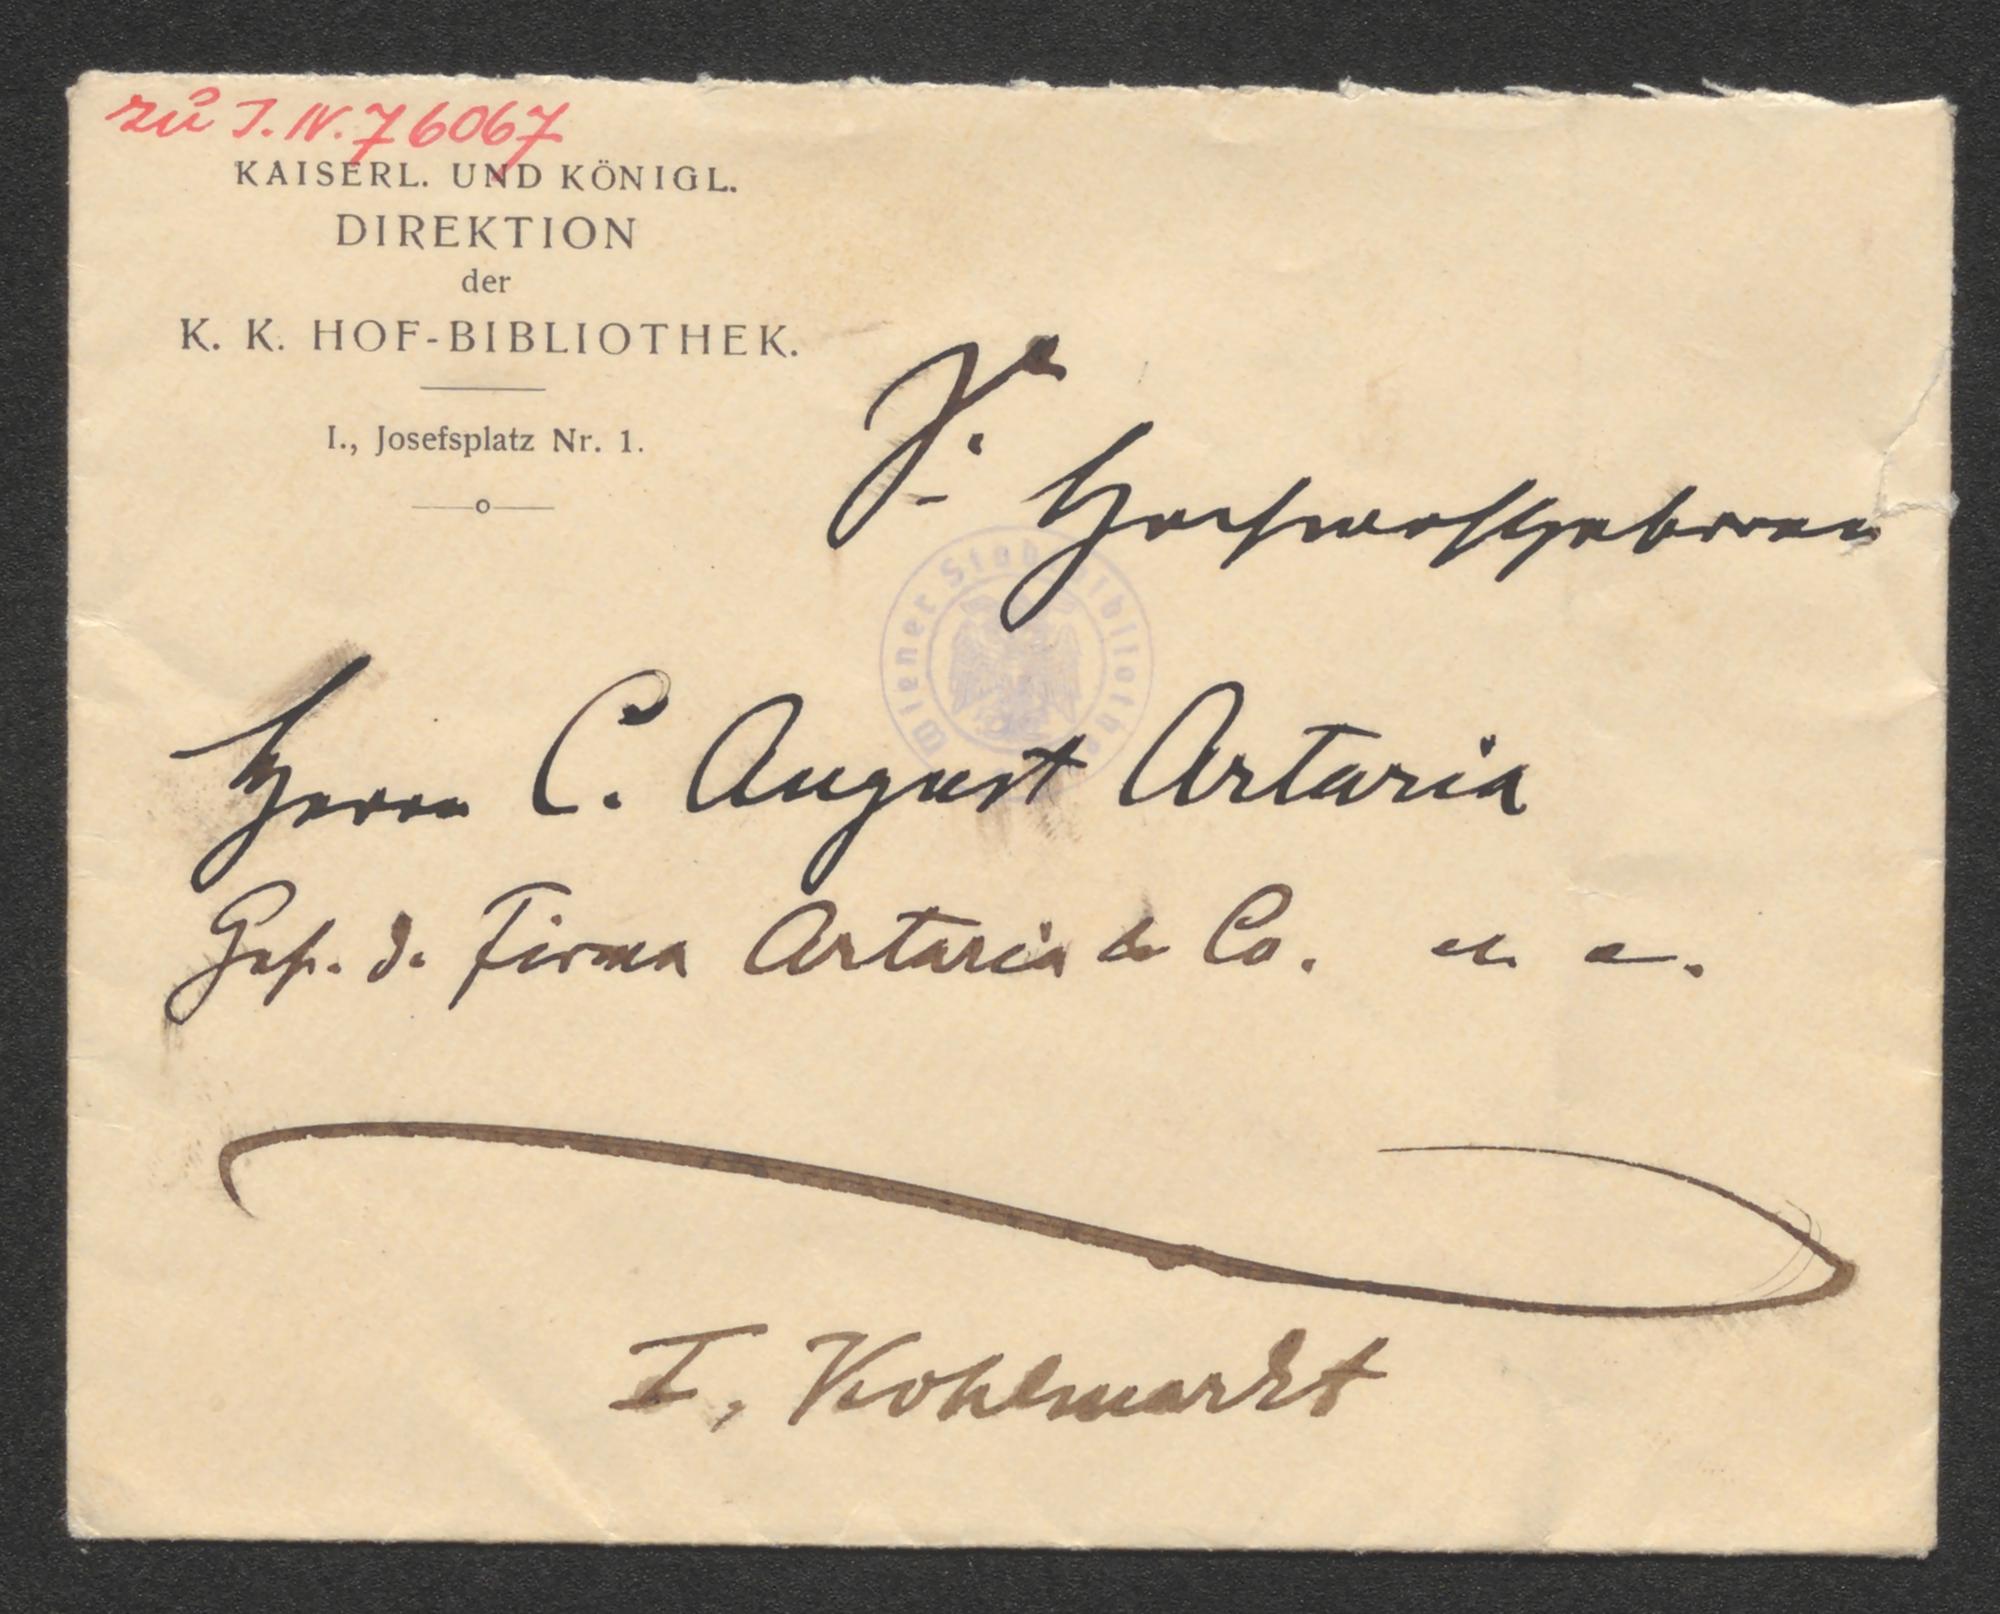 zu I.N. 76067
KAISERL. UND KÖNIGL.
DIREKTION
der
K. K. HOF-BIBLIOTHEK.
I., Josefsplatz Nr. 1.
Sr.
Hochwohlgeboren
Wiener Stadtbibliothek
Herrn C. August Artaria
Ges. d. Firma Artaria & Co. etc.
I, Kohlmarkt